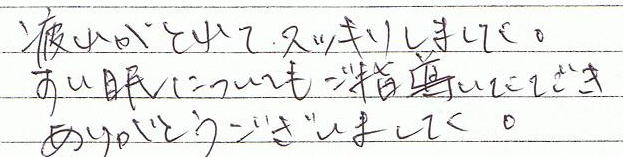 疲れがとれて、スッキリしました。
すい眠についてもご指導いただき
ありがとうございました。